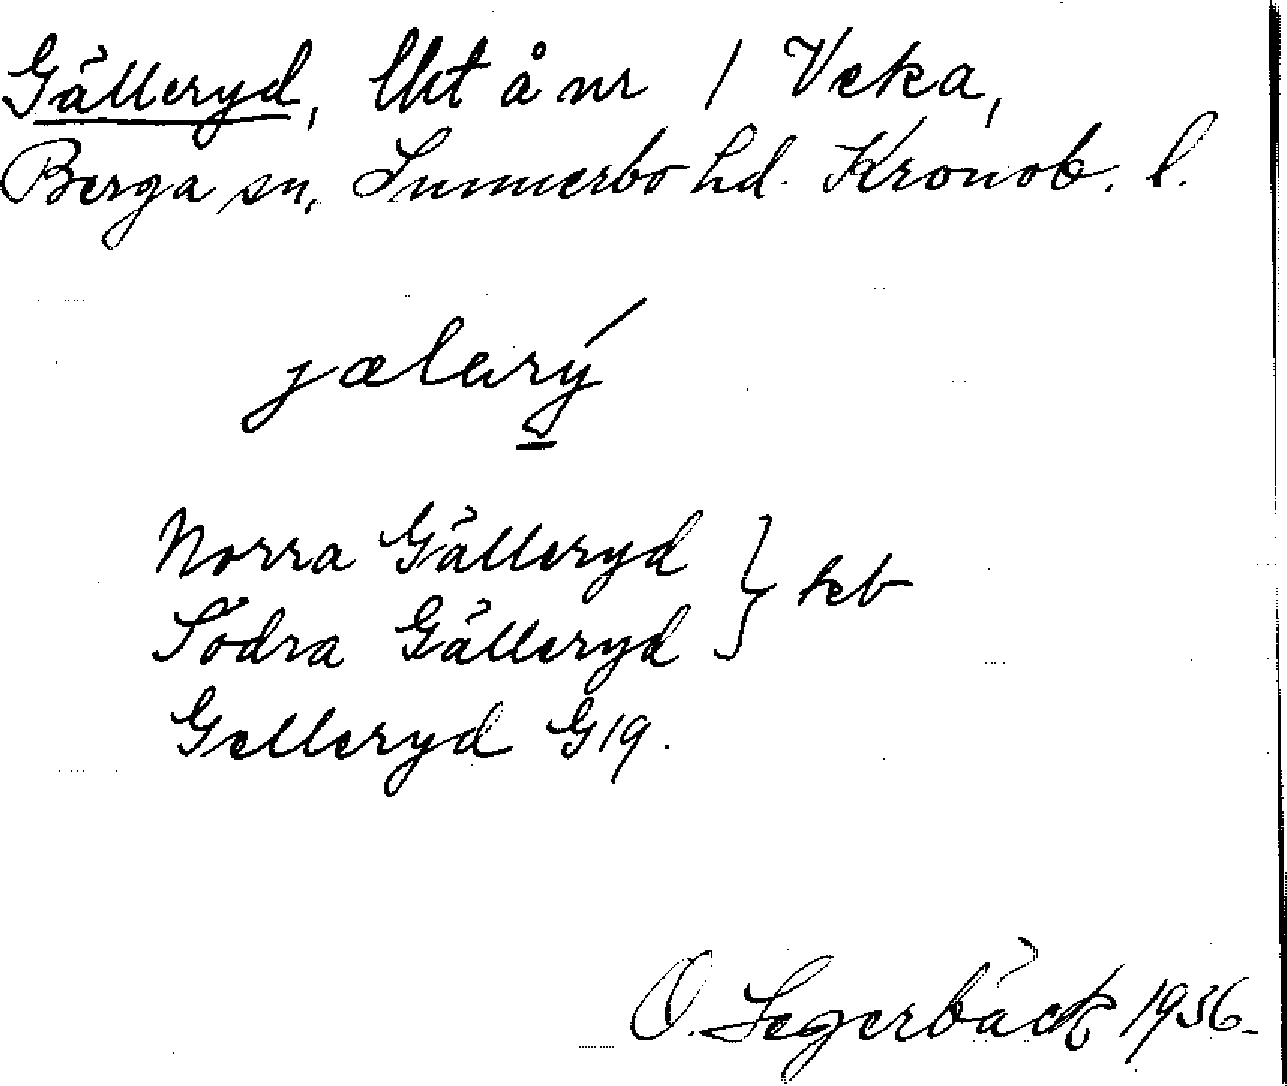 Gälleryd, lht å nr 1 Veka,
Berga sn, Sunnerbo hd. Kronob. l.
jælerý
Norra Gälleryd } keb
Södra Gälleryd
Gelleryd G19.
O. Segerbäck 1936.